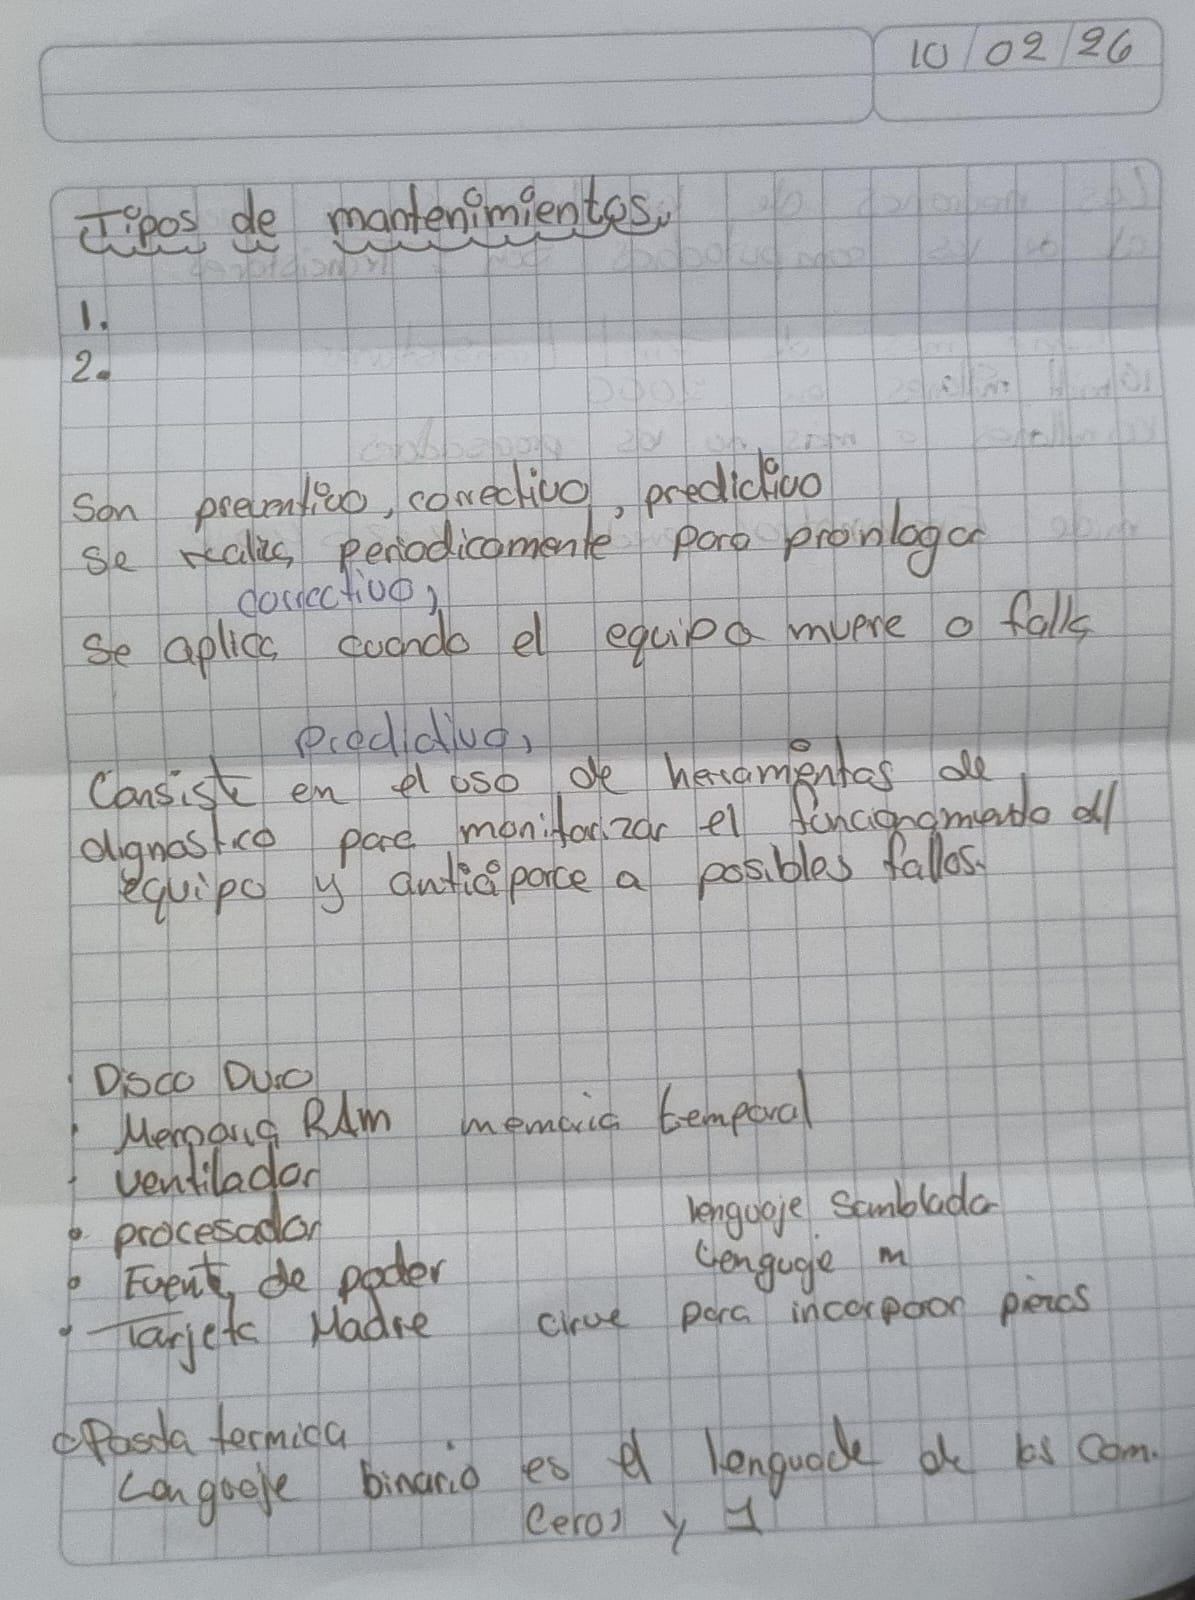 10/02/26
Tipos de mantenimientos.
1.
2.
Son preventivo, correctivo, predictivo
se realiza periodicamente para pronlogar
correctivo,
se aplica cuando el equipo muere o falla
Predictivo,
Consiste en el uso de herramientas de
dignostico para monitorizar el funcionamiento del
equipo y anticiparce a posibles fallos.
Disco Duro
Memoria RAM memoria temporal
ventilador
procesador lenguaje Samblada
Fuente de poder Lenguaje m
Tarjeta Madre cirve para incorporar piezas
Pasta termica
Lenguaje binario es el lenguade de los com.
Ceros y 1